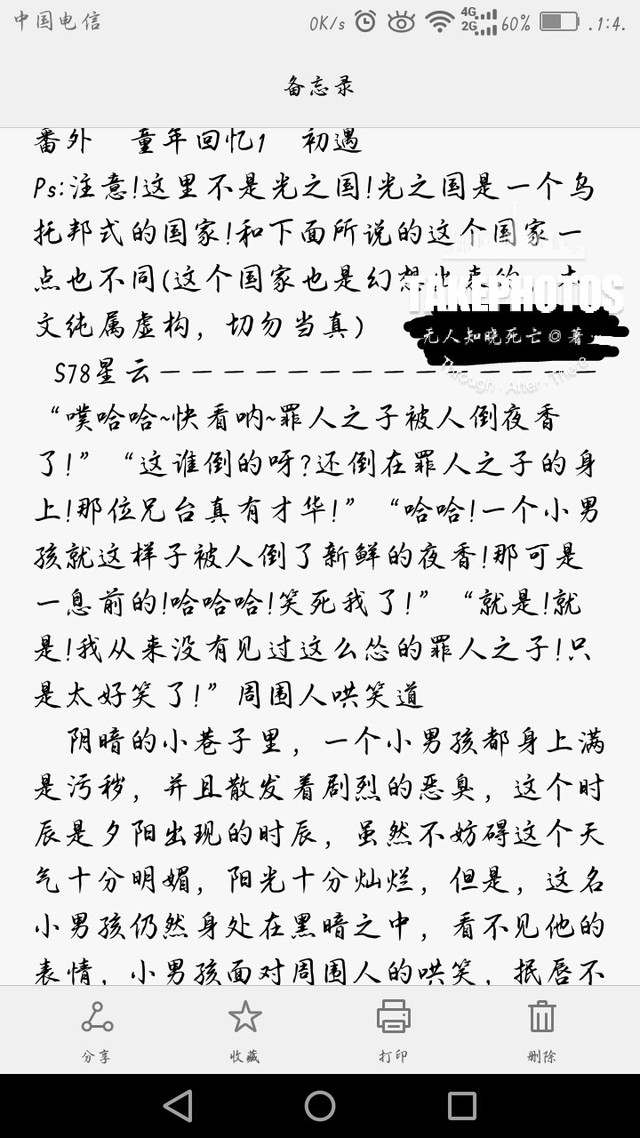 中国电信 0K/s 4G 2G 60% .1:4.
备忘录
番外 童年回忆1 初遇
Ps:注意!这里不是光之国!光之国是一个乌
托邦式的国家!和下面所说的这个国家一
点也不同(这个国家也是幻想出来的，本
TAKEPHOTOS
文纯属虚构，切勿当真)
无人知晓死亡@著
Through · After · The
S78星云－－－－－－－－－－－－－－－
“噗哈哈~快看呐~罪人之子被人倒夜香
了!”“这谁倒的呀?还倒在罪人之子的身
上!那位兄台真有才华!”“哈哈!一个小男
孩就这样子被人倒了新鲜的夜香!那可是
一息前的!哈哈哈!笑死我了!”“就是!就
是!我从来没有见过这么怂的罪人之子!只
是太好笑了!”周围人哄笑道
阴暗的小巷子里，一个小男孩都身上满
是污秽，并且散发着剧烈的恶臭，这个时
辰是夕阳出现的时辰，虽然不妨碍这个天
气十分明媚，阳光十分灿烂，但是，这名
小男孩仍然身处在黑暗之中，看不见他的
表情，小男孩面对周围人的哄笑，抿唇不
分享 收藏 打印 删除